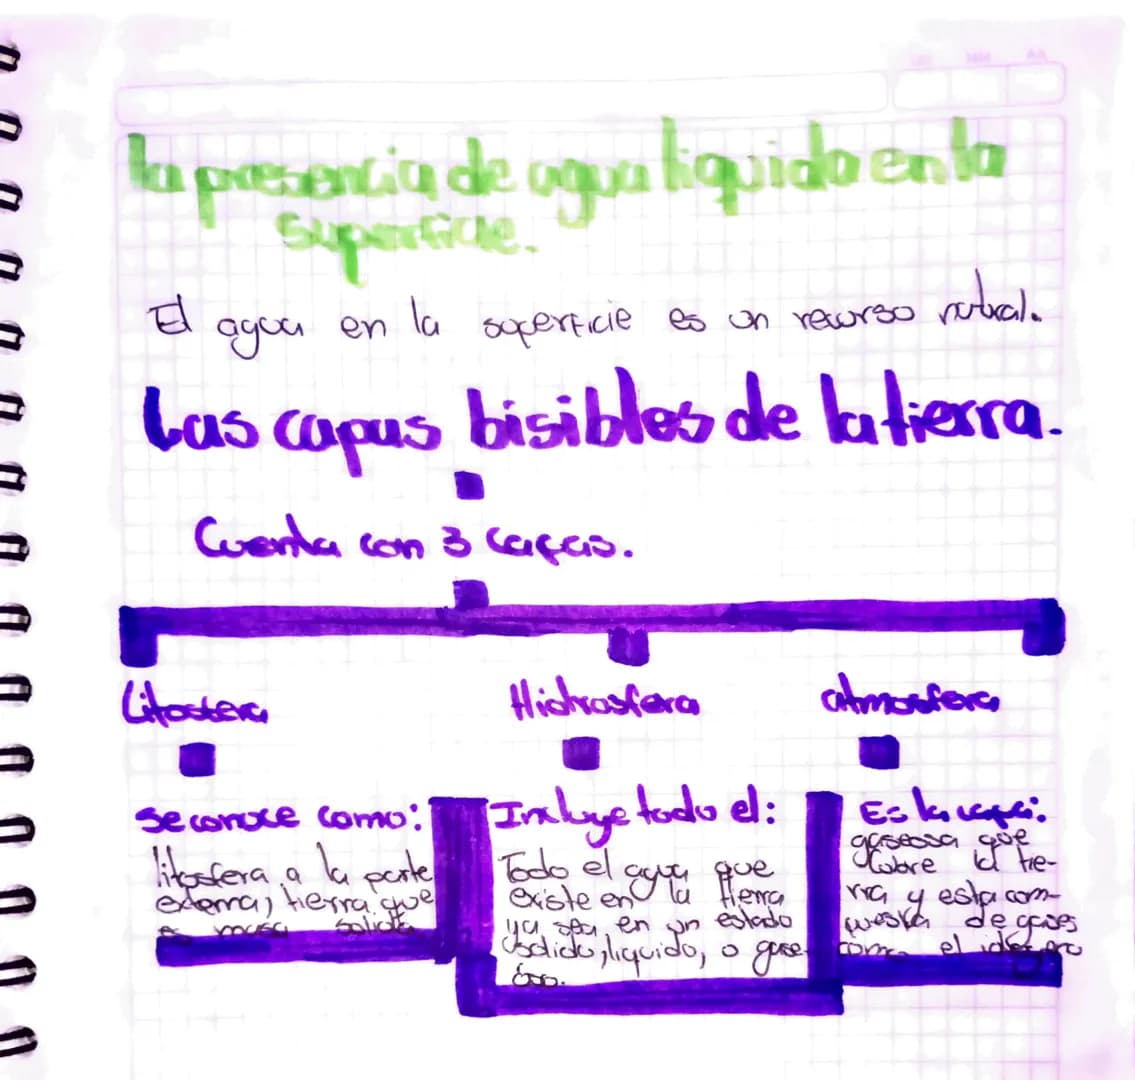 la presencia de agua liquida en la
superficie.
El agua en la superficie es un recurso natural.
Las capas bisibles de la tierra.
Cuenta con 3 capas.
Litosfera
Hidrosfera
atmosfera
se conoce como:
litosfera a la parte
externa, tierra que
es masa solida
Incluye todo el:
Todo el agua que
existe en la tierra
ya sea en un estado
solido, liquido, o gase
oso.
Es la capa:
gaseosa que
cubre la tie-
rra y esta com-
puesta de gases
como el